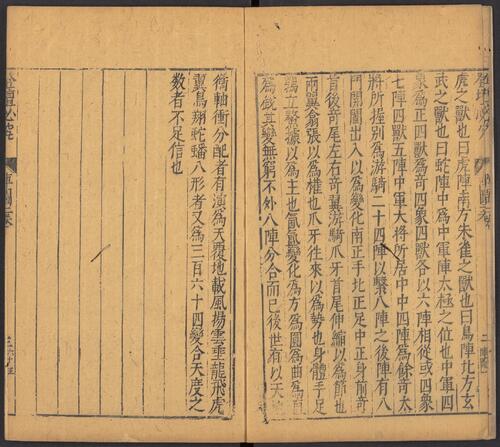 虎之獸也曰虎陣南方朱雀之獸也曰鳥陣北方玄
武之獸也曰蛇陣中為中軍陣太極之位也中軍四
象為正四獸為奇四象四獸各以六陣相從或四象
七陣四獸五陣中軍大將所居中中四陣為餘奇大
將所握别為游騎二十四陣以繫八陣之後陣有八
門開闔出入以為變化南正手北正足中正身前奇
首後奇尾左右奇翼游騎爪牙首尾伸縮以為節也
兩翼翕張以為權也爪牙往來以為勢也身體手足
為戲其變無窮不外八陣分合而已後世有以天
衡軸衝分配者有演為天覆地載風揚雲垂龍飛虎
翼鳥翔蛇蟠八形者又為三百六十四變合天度之
數者不足信也